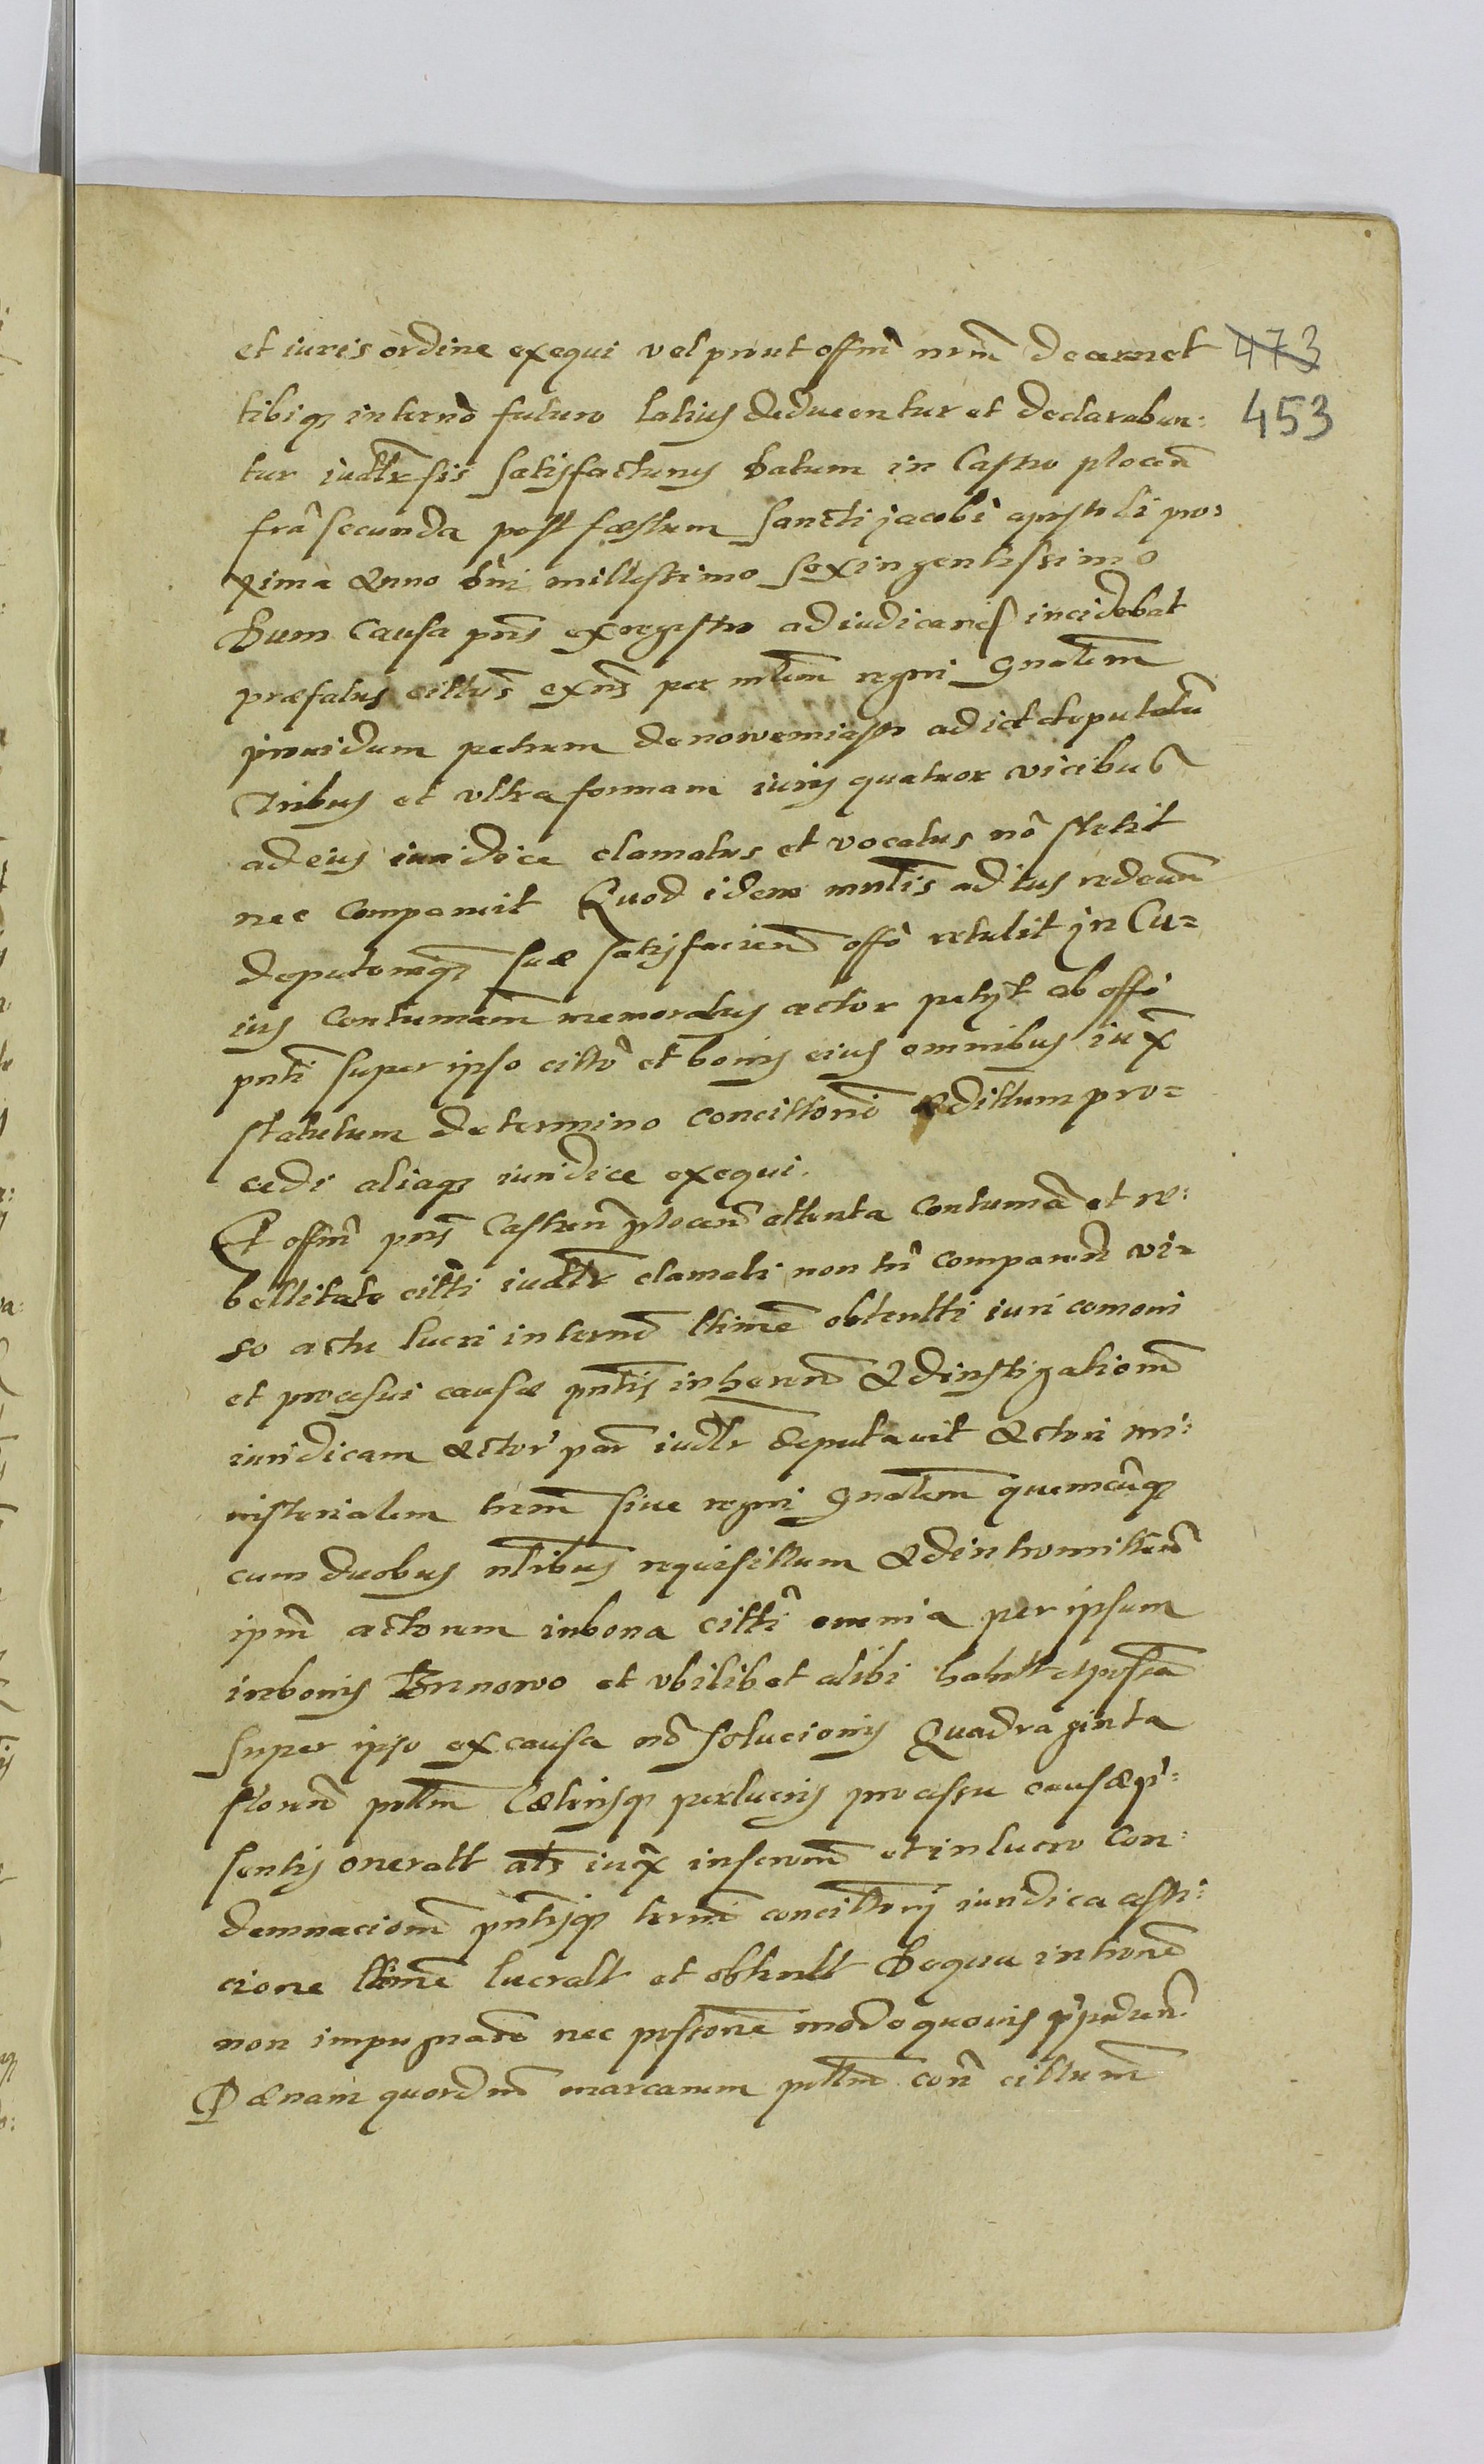 et iuris ordine exequi vel prout offm̄ nrm̄ decernet 473
tibiq3 in termō futuro latius deducentur et declarabun: 453
tur iudr̄ sis satisfacturus Datum in Castro plocen̄
fr̄a secunda post fæstum Sancti jacobi apostoli pro:
xima Anno Dn̄i millessimo sexingentissimo
Dum Causa pn̄s ex registro adiudicari incidebat
præfatus cittus̄ exn̄s per mlem̄ regni gnalem̄
providum petrum de nowemiasto ad id deputatū
Tribus et ultra formam iuris quatuor vicibus
ad eius iuridice clamatus et vocatus nō stetit
nec Comparuit Quod idem mnlis̄ ad ius redeun̄
deputoniq3 suæ satisfacien̄ offō retulit in Cu=
ius Contumām̄ memoratus actor petyt ab offō
pnti̅ super ipso cittō et bonis eius omnibus iux̄
statutum de termino concittorio ædittum pro=
cedi aliaq3 iuridice exequi.
Et offm̄ pn̄s Castren̄ plocen̄ attenta Contumā et re:
bellitate citti̅ iudr̄ clamati non tn̄ comparen̄ vi=
so actu lucri in termō ltimē obtentti iuri comoni
et processui causæ pntis̄ inheren̄ Ad instigationē
iuridicam Actor̄ par̄ iudr̄ deputavit Actori mi:
nisterialem trem̄ sive regni gnalem̄ quemcūq3
cum duobus nlibus̄ requisittum Ad intromitten̄
ipm̄ actorem in bona citti̅ omnia per ipsum
in bonis et ubilibet alibi habitt et possā
super ipso ex causa nō solucionis Quadraginta
floren̄ pollm̄ Cæterisq3 per lucris processu causæ p̄:
sentis oneratt als̄ iux̄ inscrom̄ et in lucro Con:
demnacionē pntisq3 termi̅ concittorij iuridica assti:
cione ltimē lucratt et obtentt De qua intronē
non impugnare nec possonē modo quovis
Pænam quordm̄ marcarum pollm̄ con̄ cittum̄